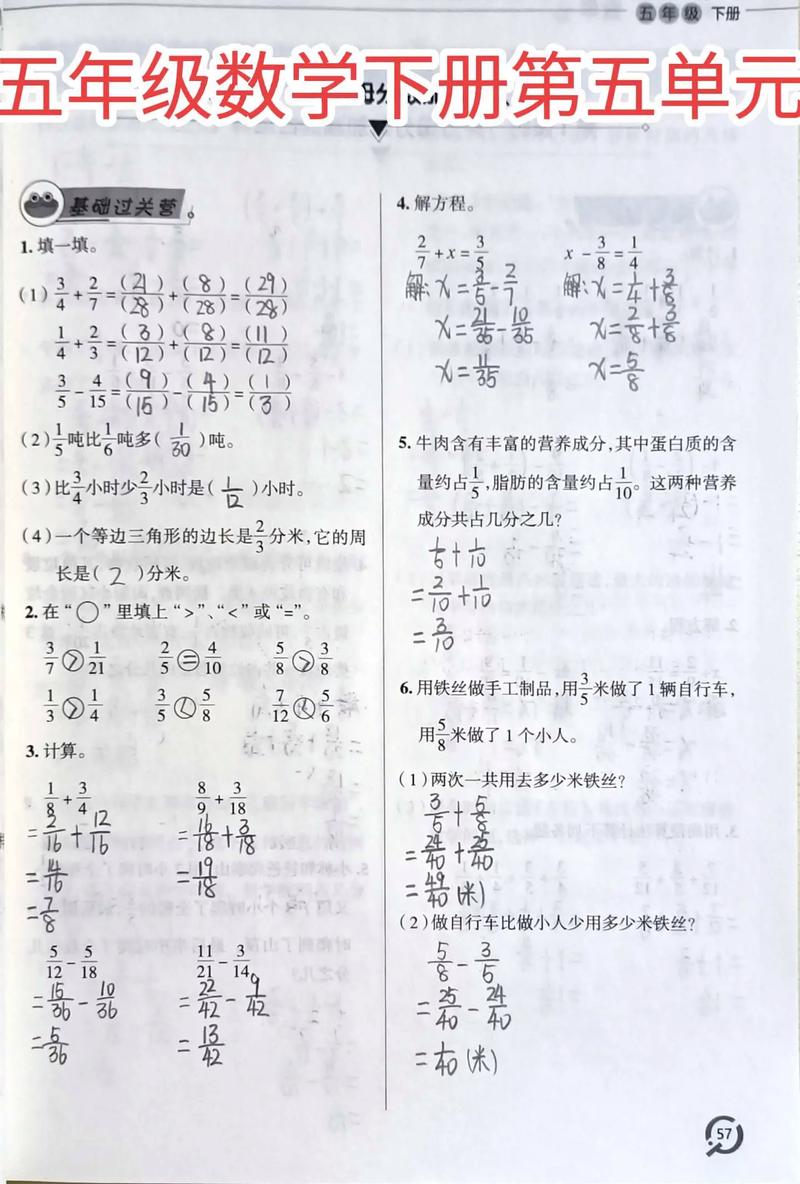 五年级 下册
五年级数学下册第五单元
基础过关营
1.填一填。
(1) 3/4+2/7=(21)/(28)+(8)/(28)=(29)/(28)
1/4+2/3=(3)/(12)+(8)/(12)=(11)/(12)
3/5-4/15=(9)/(15)-(4)/(15)=(1)/(3)
(2) 1/5吨比1/6吨多(1/30)吨。
(3)比3/4小时少2/3小时是(1/12)小时。
(4)一个等边三角形的边长是2/3分米,它的周
长是(2)分米。
2.在“○”里填上“>”、“<”或“=”。
3/7>1/21 2/5=4/10 5/8>3/8
1/3>1/4 3/5<5/8 7/12<5/6
3.计算。
1/8+3/4 8/9+3/18
=2/16+12/16 =16/18+3/18
=14/16 =19/18
=7/8
5/12-5/18 11/21-3/14
=15/36-10/36 =22/42-9/42
=5/36 =13/42
4.解方程。
2/7+x=3/5 x-3/8=1/4
解:x=3/5-2/7 解:x=1/4+3/8
x=21/35-10/35 x=2/8+3/8
x=11/35 x=5/8
5.牛肉含有丰富的营养成分,其中蛋白质的含
量约占1/5,脂肪的含量约占1/10。这两种营养
成分共占几分之几?
1/5+1/10
=2/10+1/10
=3/10
6.用铁丝做手工制品,用3/5米做了1辆自行车,
用5/8米做了1个小人。
(1)两次一共用去多少米铁丝?
3/5+5/8
=24/40+25/40
=49/40(米)
(2)做自行车比做小人少用多少米铁丝?
5/8-3/5
=25/40-24/40
=1/40(米)
57